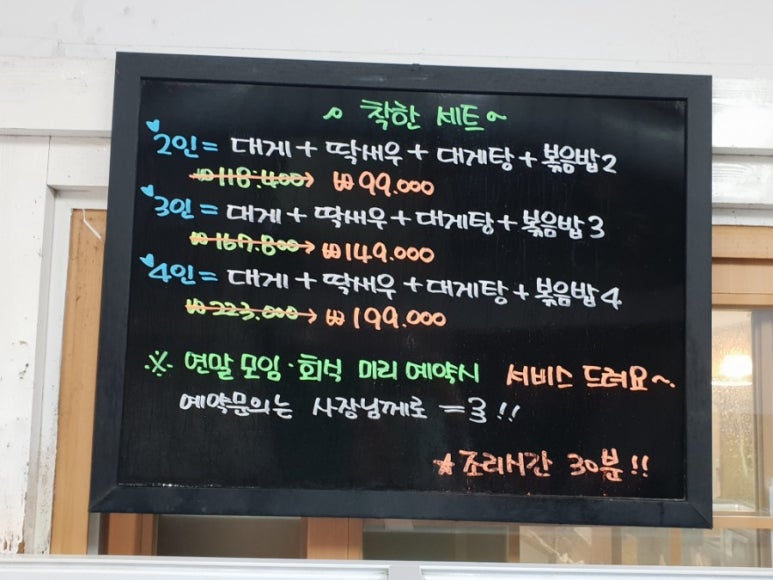 착한 세트~
2인 = 대게 + 딱새우 + 대게탕 + 볶음밥 2
₩118.400 → ₩99.000
3인 = 대게 + 딱새우 + 대게탕 + 볶음밥 3
₩167.800 → ₩149.000
4인 = 대게 + 딱새우 + 대게탕 + 볶음밥 4
₩223.000 → ₩199.000
※ 연말 모임·회식 미리 예약시 서비스 드려요~
예약문의는 사장님께로 =3 !!
★조리시간 30분!!